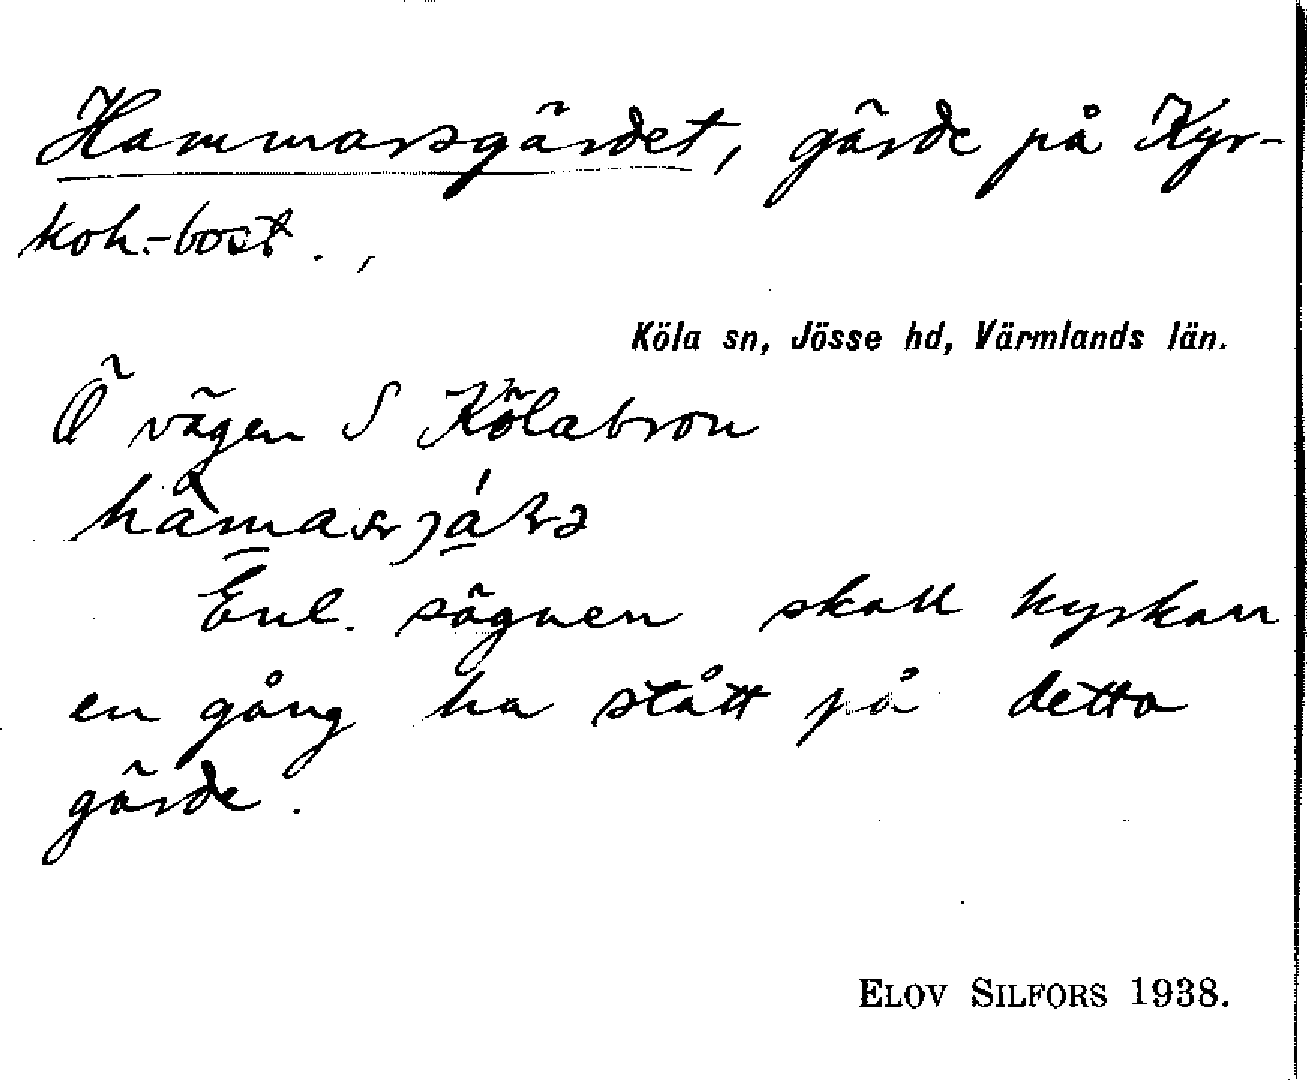 Hammarsgärdet, gärde på Kyr-
koh.-bost.,
Köla sn, Jösse hd, Värmlands län.
Ö vägen S Kölabron
Enl. sägnen skall kyrkan
en gång ha stått på detta
gärde.
ELOV SILFORS 1938.